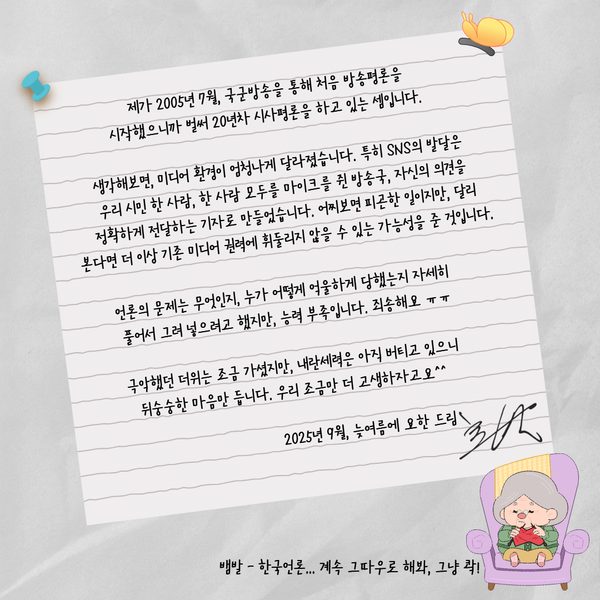 제가 2005년 7월, 국군방송을 통해 처음 방송평론을
시작했으니까 벌써 20년차 시사평론을 하고 있는 셈입니다.
생각해보면, 미디어 환경이 엄청나게 달라졌습니다. 특히 SNS의 발달은
우리 시민 한 사람, 한 사람 모두를 마이크를 쥔 방송국, 자신의 의견을
정확하게 전달하는 기자로 만들었습니다. 어찌보면 피곤한 일이지만, 달리
본다면 더 이상 기존 미디어 권력에 휘둘리지 않을 수 있는 가능성을 준 것입니다.
언론의 문제는 무엇인지, 누가 어떻게 억울하게 당했는지 자세히
풀어서 그려 넣으려고 했지만, 능력 부족입니다. 죄송해요 ㅠㅠ
극악했던 더위는 조금 가셨지만, 내란세력은 아직 버티고 있으니
뒤숭숭한 마음만 듭니다. 우리 조금만 더 고생하자고요^^
2025년 9월, 늦여름에 요한 드림
뱀발 - 한국언론... 계속 그따우로 해봐, 그냥 콱!